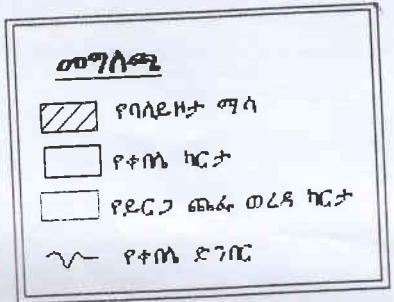 መግለጫ
የባለይዞታ ማሳ
የቀበሌ ካርታ
የይርጋ ጨፌ ወረዳ ካርታ
የቀበሌ ድንበር